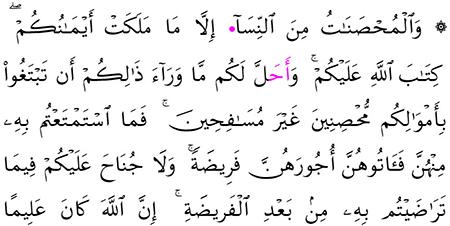 ۞ وَٱلْمُحْصَنَـٰتُ مِنَ ٱلنِّسَآءِ إِلَّا مَا مَلَكَتْ أَيْمَـٰنُكُمْ ۖ
كِتَـٰبَ ٱللَّهِ عَلَيْكُمْ ۚ وَأَحَلَّ لَكُم مَّا وَرَآءَ ذَٰلِكُمْ أَن تَبْتَغُوا۟
بِأَمْوَٰلِكُم مُّحْصِنِينَ غَيْرَ مُسَـٰفِحِينَ ۚ فَمَا ٱسْتَمْتَعْتُم بِهِۦ
مِنْهُنَّ فَـَٔاتُوهُنَّ أُجُورَهُنَّ فَرِيضَةً ۚ وَلَا جُنَاحَ عَلَيْكُمْ فِيمَا
تَرَٰضَيْتُم بِهِۦ مِنۢ بَعْدِ ٱلْفَرِيضَةِ ۚ إِنَّ ٱللَّهَ كَانَ عَلِيمًا